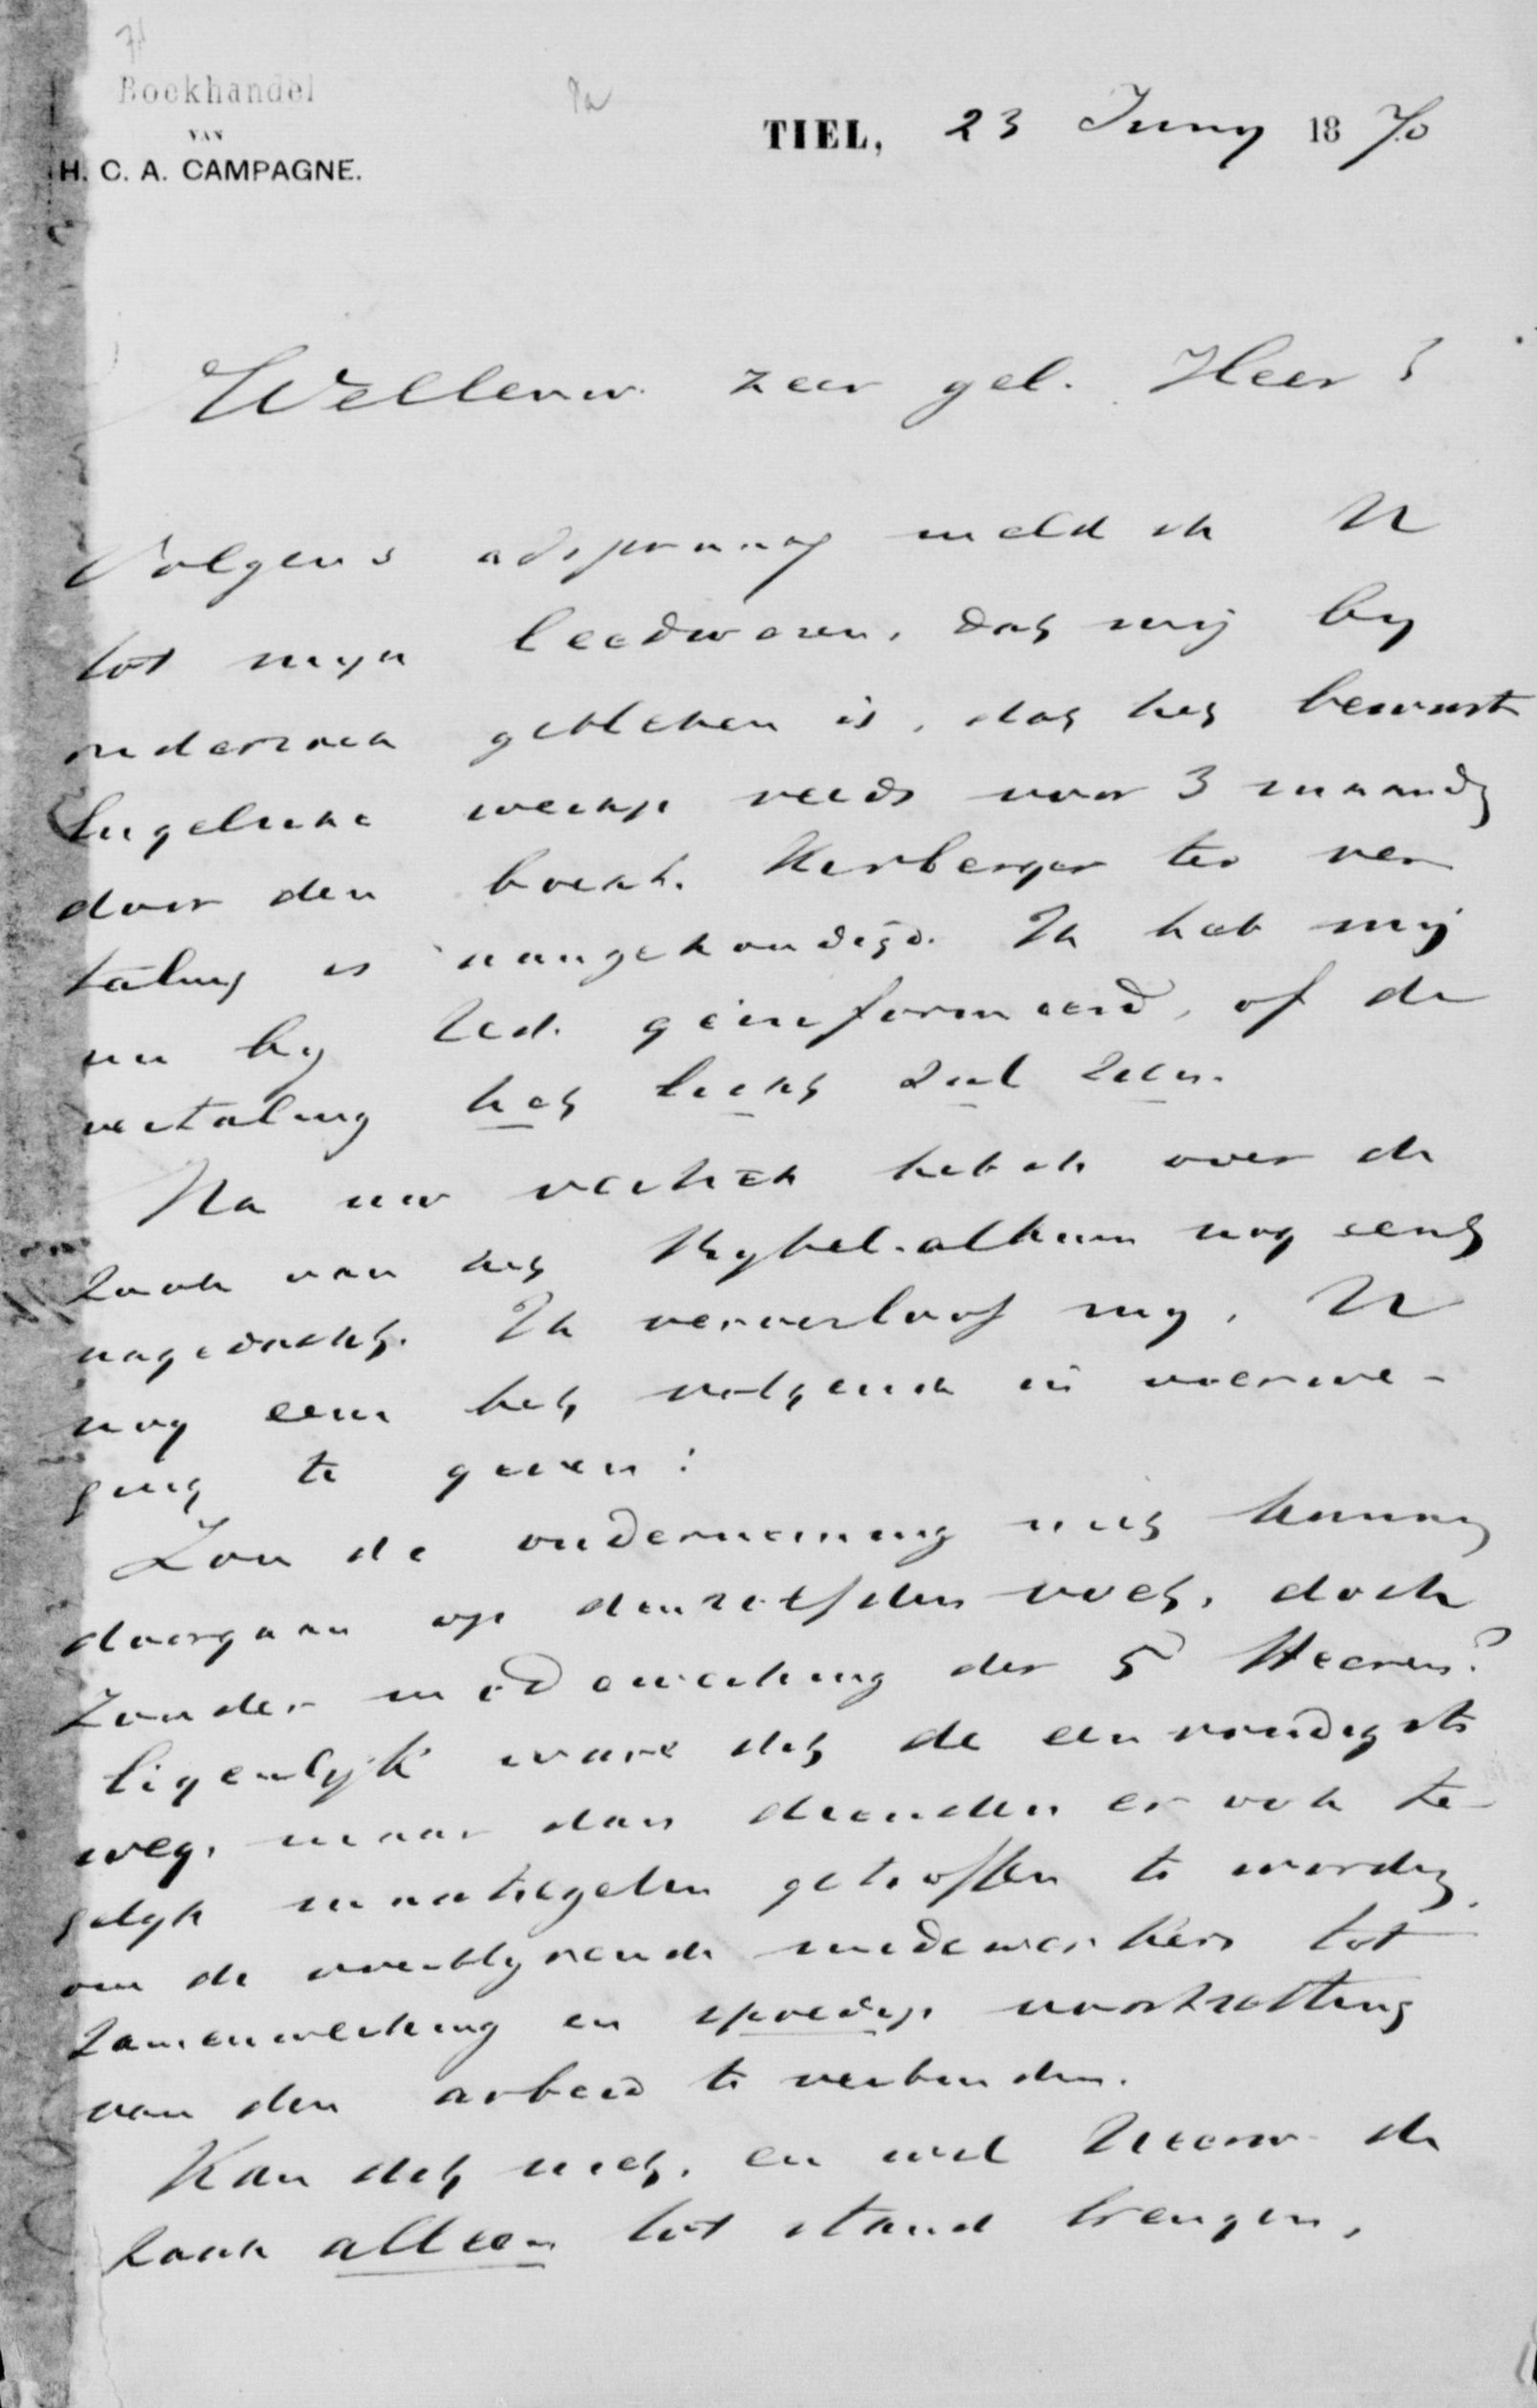 Boekhandel
VAN
H. C. A. CAMPAGNE.
TIEL, 23 Juny 1870
WelEerw. zeer gel. Heer!
Volgens afspraak meld ik U
tot myn leedwezen, dat mij by
onderzoek gebleken is, dat het bewuste
Engelsche werkje reeds voor 3 maand
door den boekh. Kerberger ter ver
taling is aangekondigd. Ik heb mij
nu by Zed. geinformeerd, of de
vertaling het licht zal zien.
Na uw vertrek heb ik over de
zaak van het Bybel-album nog eens
nagedacht. Ik veroorloof my, U
nog eens het volgende in overwe-
ging te geven:
Zou de onderneming niet kunnen
doorgaan op denzelfden voet, doch
zonder medewerking der 5 Heeren?
Eigenlyk ware dit de eenvoudigste
weg, maar dan dienden er ook te-
gelyk maatregelen getroffen te worden
om de overblyvende medewerkers tot
zamenwerking en spoedige voortzetting
van den arbeid te verbinden.
Kan dit niet, en wil UEerw. de
zaak alleen tot stand brengen,